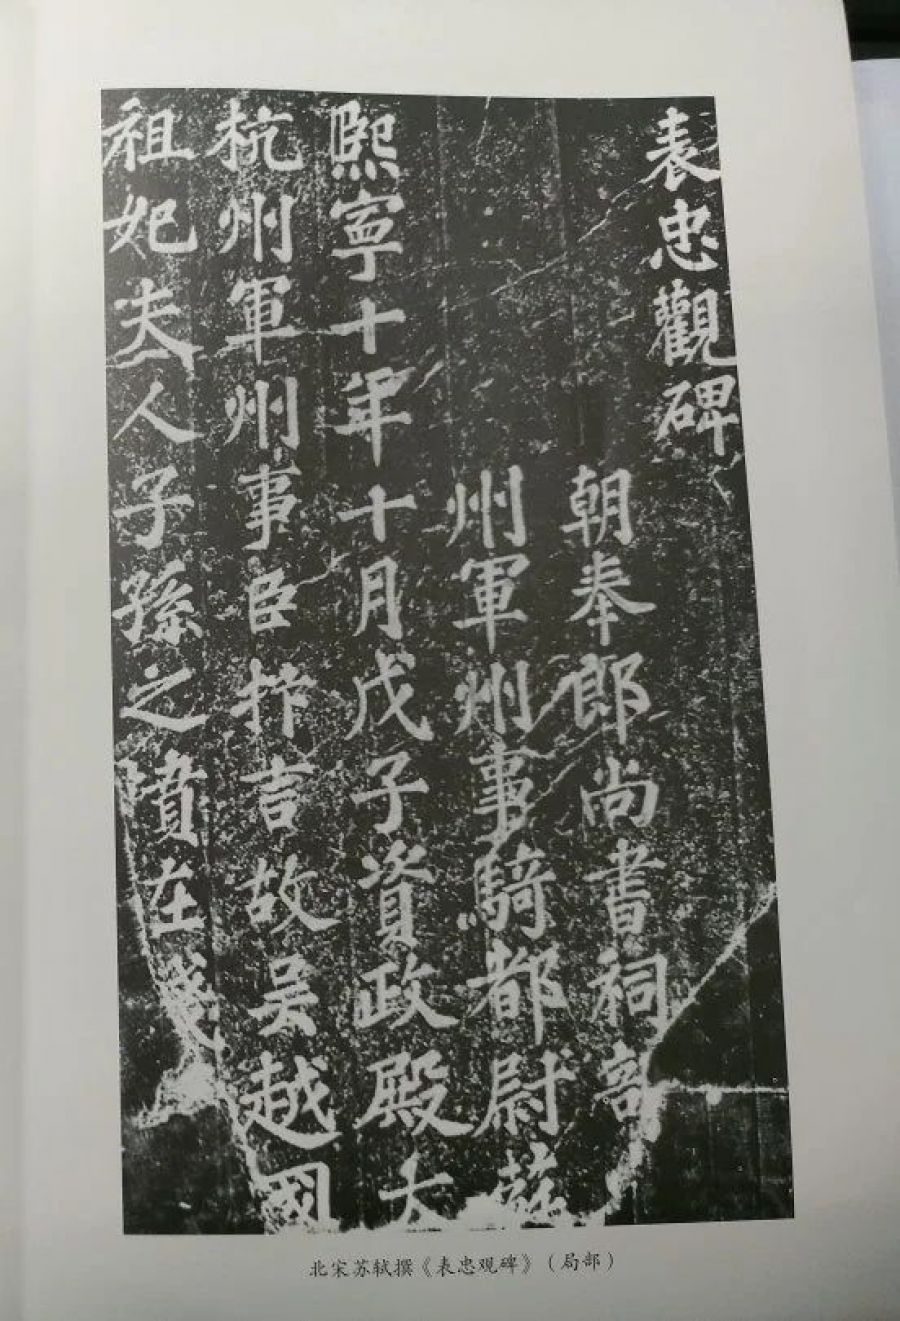 表忠觀碑
朝奉郎尚書祠部
州軍州事騎都尉蘇
熙寧十年十月戊子資政殿大
杭州軍州事臣抃言故吳越國
祖妃夫人子孫之墳在錢
北宋苏轼撰《表忠观碑》（局部）